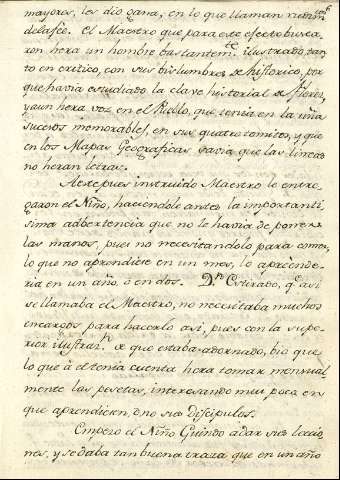 mayores, les dió gana; en lo que llaman
delafée. El Maestro que para este efecto busca
ron hera un hombre bastantem.te ilustrado, tan
to en critico, con sus bislumbres de historico, por
que havia estudiado la clave historial de Florez,
y aun hera voz en el Pueblo, que tenia en la uña
sucesos memorables, en sus quatro tomitos, y que
en los Mapas Geograficas savia que las lineas
no heran letras.
A este pues instruido Maestro le entre
garon el Niño, haciendole antes la importanti
sima adbertencia que no le havia de poner
las manos, pues no necesitandolo para comer,
lo que no aprendiese en un mes, lo aprende
ria en un año, o en dos. D.n q.e asi
se llamaba el Maestro, no necesitaba muchos
encargos para hacerlo asi, pues con la supe
rior ilustraz.n de que estaba adornado, bio que
lo que à el tenia cuenta hera tomar mensual
mente las pesetas, interesando mui poca en
que aprendiesen, ò no sus discipulos.
Empezo el Niño Guindo a dar sus leccio
nes, y se daba tan buena traza que en un año